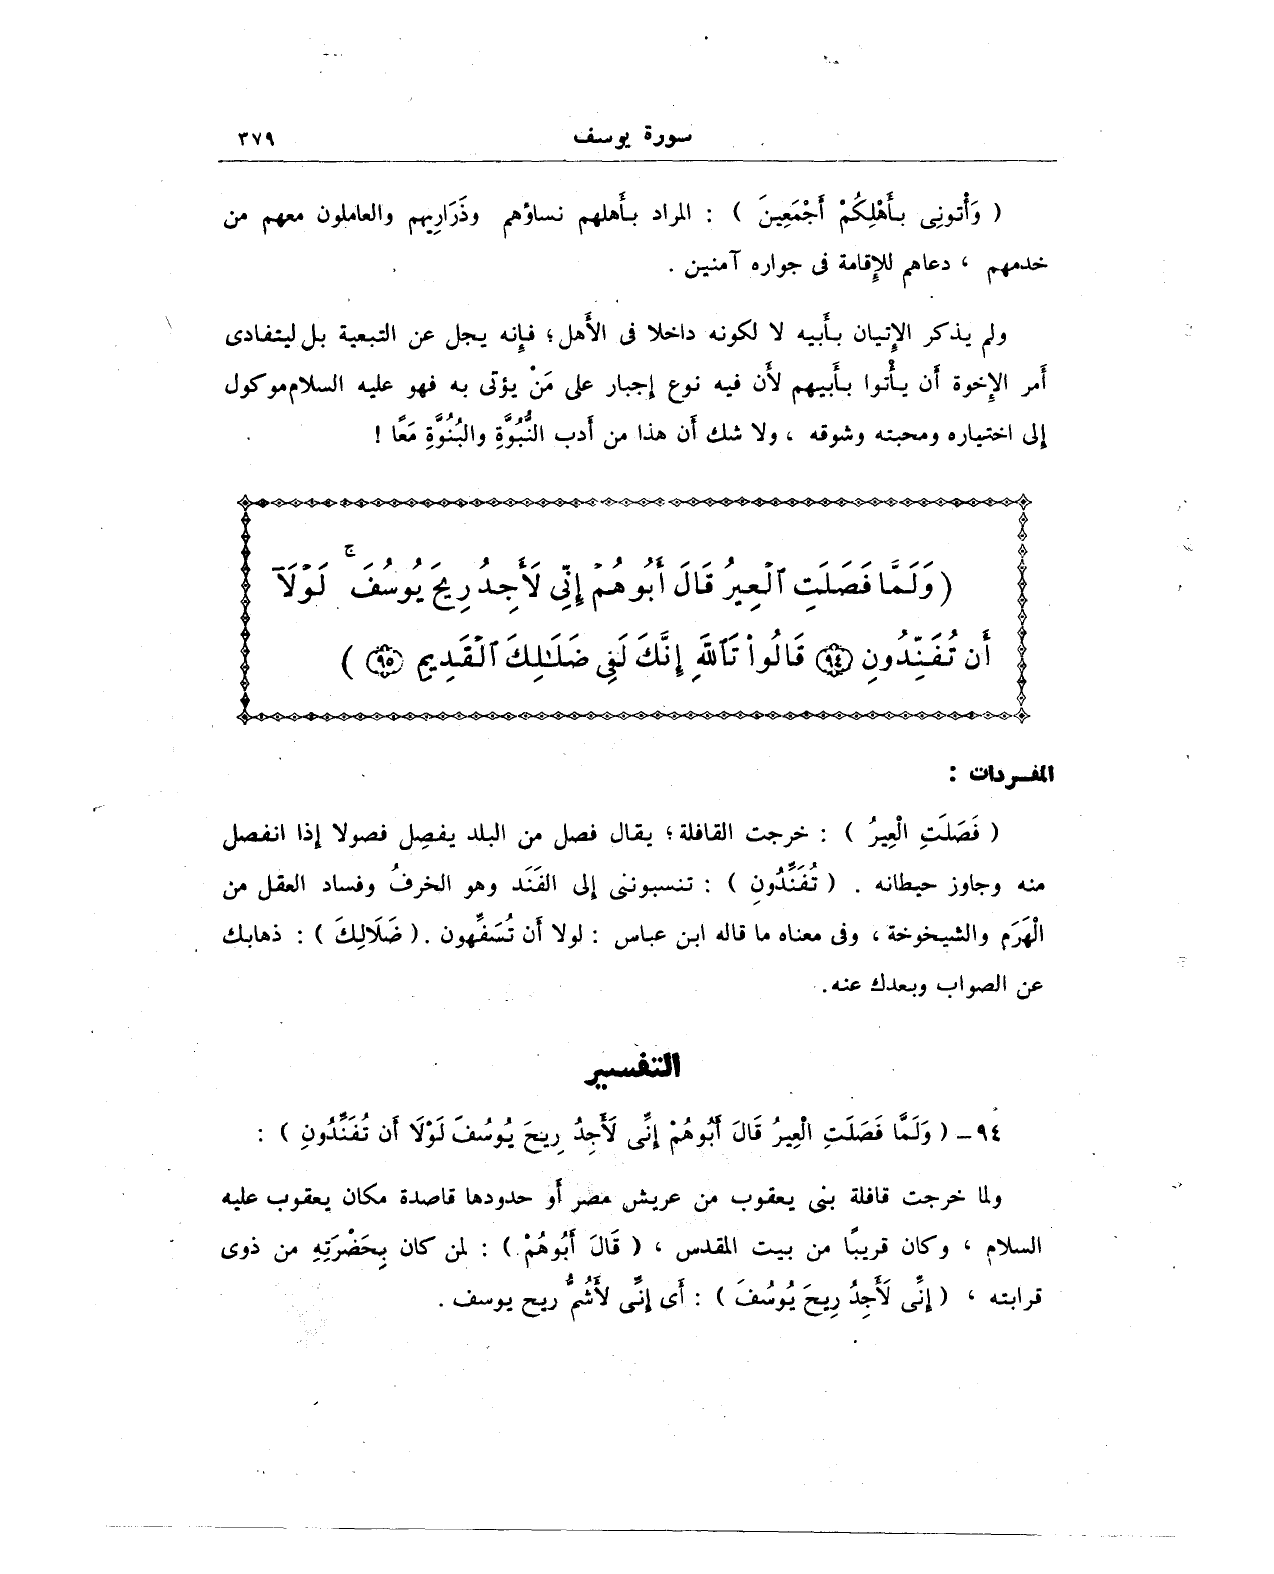 سورة يوسف ٣٧٩
( وَأْتونِى بأَهْلِكُمْ أَجْمَعِينَ ) : المراد بأَهلهم نساؤهم وذَرَارِيهم والعاملون معهم من
خدمهم ، دعاهم للإقامة فى جواره آمنين .
ولم يذكر الإتيان بأَبيه لا لكونه داخلا فى الأَهل؛ فإنه يجل عن التبعية بل ليتفادى
أمر الإخوة أن يأْتوا بأَبيهم لأَن فيه نوع إجبار على مَنْ يؤتى به فهو عليه السلام موكول
إلى اختياره ومحبته وشوقه ، ولا شك أن هذا من أدب النُّبُوَّةِ والبُنُوَّةِ مَعًا !
( وَلَمَّا فَصَلَتِ ٱلْعِيرُ قَالَ أَبُوهُمْ إِنِّى لَأَجِدُ رِيحَ يُوسُفَ ۚ لَوْلَآ
أَن تُفَنِّدُونِ ٩٤ قَالُوا۟ تَٱللَّهِ إِنَّكَ لَفِى ضَلَـٰلِكَ ٱلْقَدِيمِ ٩٥ )
المفردات :
( فَصَلَتِ الْعِيرُ ) : خرجت القافلة؛ يقال فصل من البلد يفصِل فصولا إذا انفصل
منه وجاوز حيطانه . ( تُفَنِّدُونِ ) : تنسبوننى إلى الفَنَد وهو الخرفُ وفساد العقل من
الْهَرَم والشيخوخة ، وفى معناه ما قاله ابن عباس : لولا أن تُسَفِّهون . ( ضَلَالِكَ ) : ذهابك
عن الصواب وبعدك عنه.
التفسير
٩٤ – ( وَلَمَّا فَصَلَتِ الْعِيرُ قَالَ أَبُوهُمْ إِنِّى لَأَجِدُ رِيحَ يُوسُفَ لَوْلَا أَن تُفَنِّدُونِ ) :
ولما خرجت قافلة بنى يعقوب من عريش مصر أو حدودها قاصدة مكان يعقوب عليه
السلام ، وكان قريبًا من بيت المقدس ، ( قَالَ أَبُوهُمْ ) : لمن كان بِحَضْرَتِهِ من ذوى
قرابته ، ( إِنِّى لَأَجِدُ رِيحَ يُوسُفَ ) : أى إنِّى لأَشُمُّ ريح يوسف .